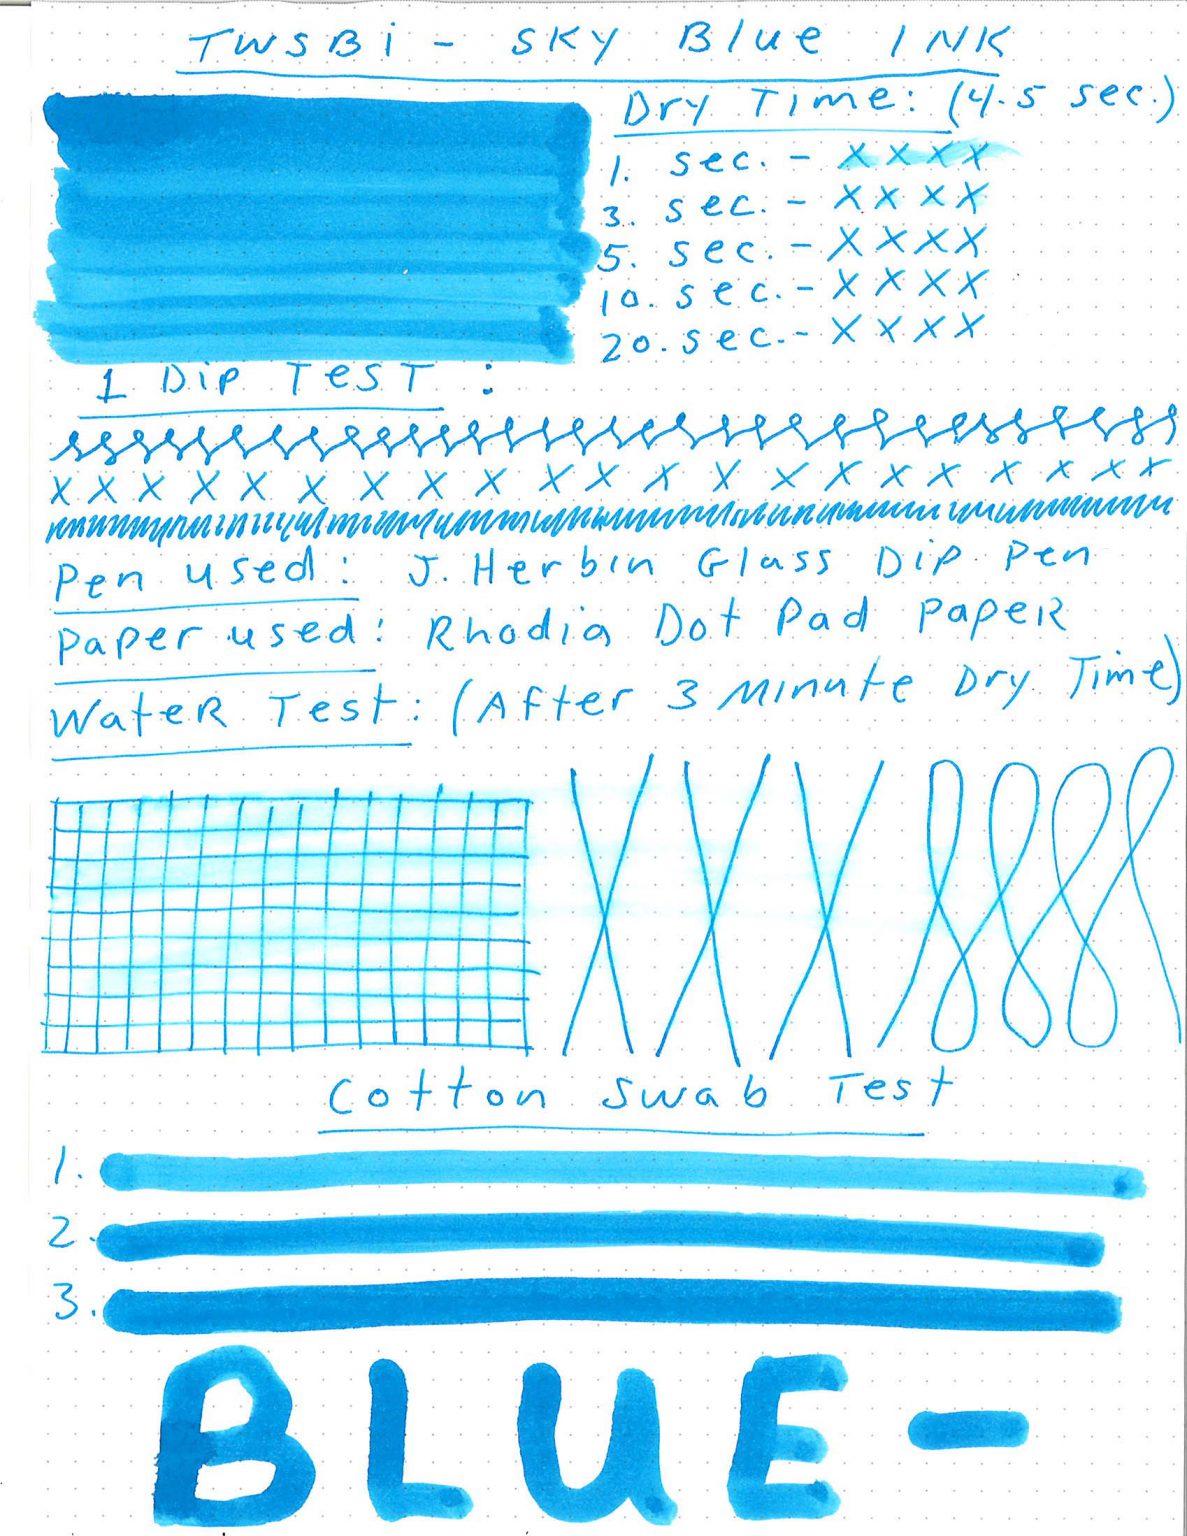 TWSBi - SKY Blue INK
Dry Time: (4.5 sec.)
1. sec. - X X X X
3. sec. - X X X X
5. sec. - X X X X
10. sec. - X X X X
20. sec. - X X X X
1 Dip Test :
X X X X X X X X X X X X X X X X X X X X
Pen used: J. Herbin Glass Dip Pen
Paper used: Rhodia Dot Pad PapeR
WateR Test: (After 3 Minute Dry Time)
Cotton Swab Test
1.
2.
3.
BLUE-